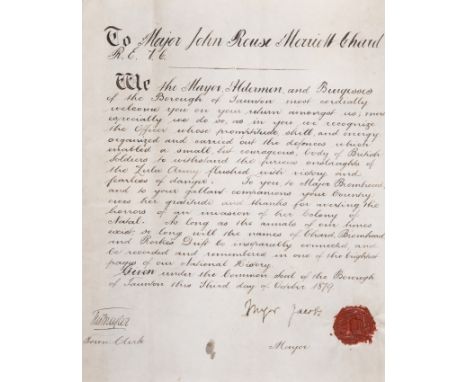 To Major John Rouse Merriott Chard
R.E. V.C.
We the Mayor, Aldermen, and Burgesses
of the Borough of Taunton most cordially
welcome you on your return amongst us; more
especially we do so, as in you we recognize
the Officer whose promptitude skill, and energy
organized and carried out the defences which
enabled a small but courageous body of British
Soldiers to withstand the furious onslaughts of
the Zulu Army flushed with victory and
fearless of danger. To you to Major Bromhead,
and to your gallant companions your Country
owes her gratitude and thanks for averting the
horrors of an invasion of her Colony of
Natal. As long as the annals of our times
exist; so long will the names of Chard, Bromhead
and Rorkes Drift be inseparably connected, and
be recorded and remembered in one of the brightest
pages of our National History.
Given under the Common Seal of the Borough
of Taunton this Third day of October 1879.
Myer Jacobs
Town Clerk
Mayor